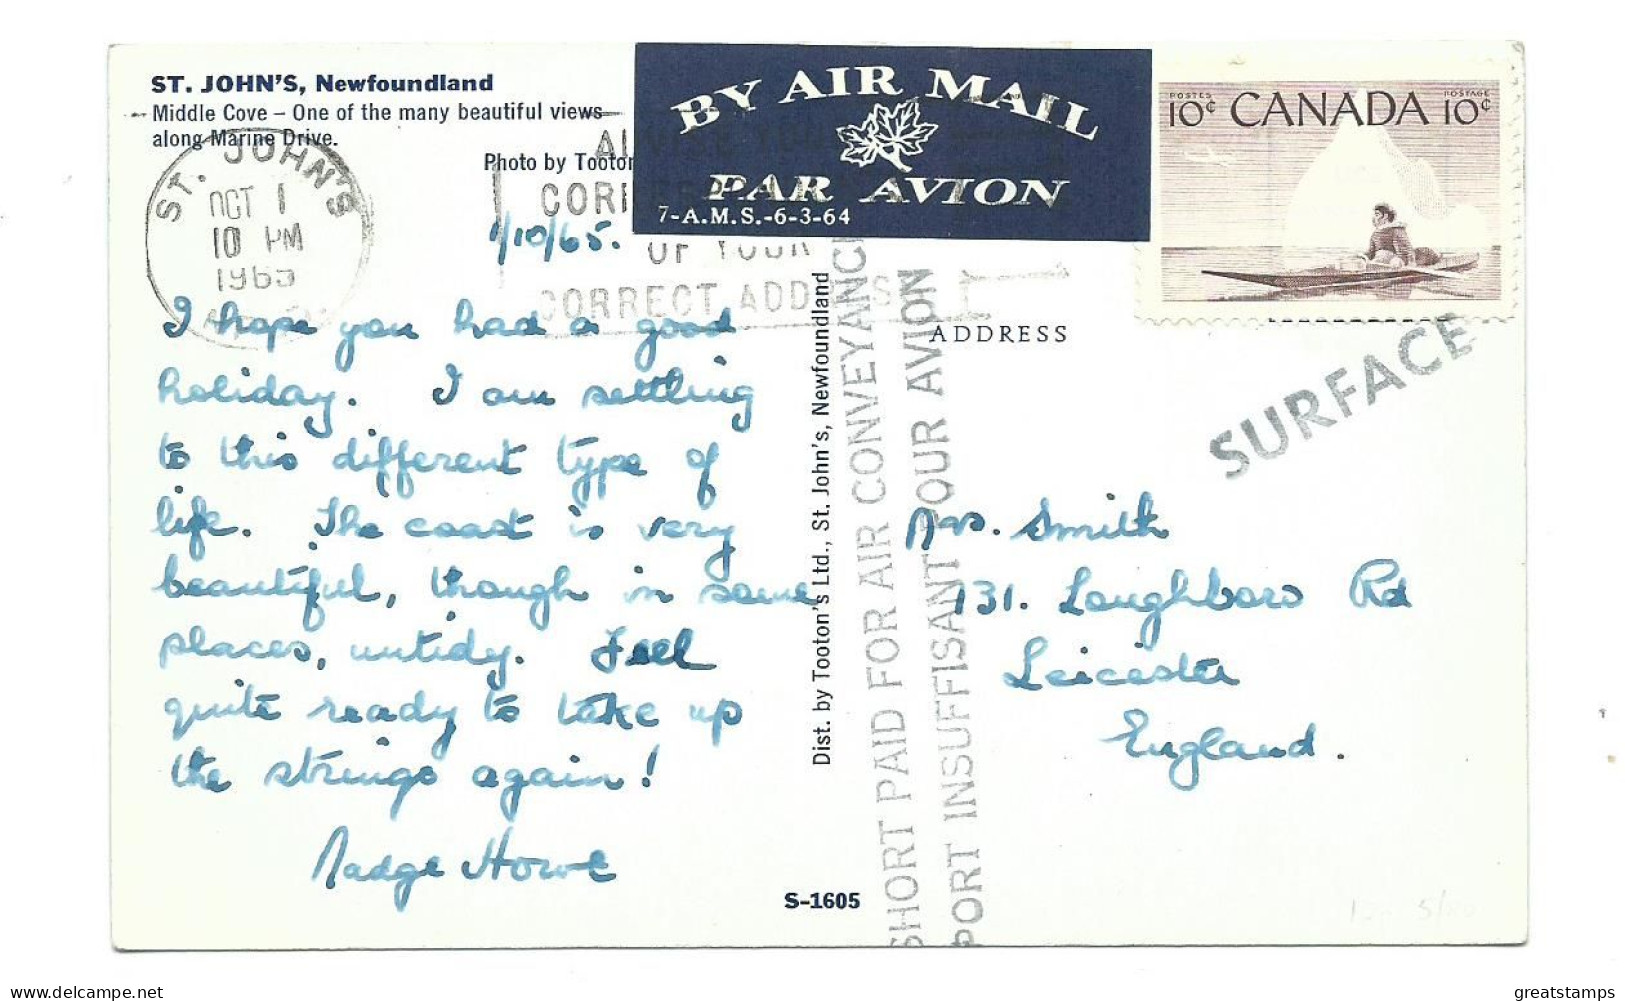 ST. JOHN'S, Newfoundland
Middle Cove – One of the many beautiful views
along Marine Drive.
Photo by Tooton
BY AIR MAIL
PAR AVION
7-A.M.S.-6-3-64
POSTES POSTAGE
10¢ CANADA 10¢
ST. JOHN'S
OCT 1
10 PM
1965
OF YOUR
CORRECT ADDRESS
1/10/65.
I hope you had a good
holiday. I am settling
to this different type of
life. The coast is very
beautiful, though in some
places, untidy. Feel
quite ready to take up
the strings again!
Madge Howe
S-1605
Dist. by Tooton's Ltd., St. John's, Newfoundland
SHORT PAID FOR AIR CONVEYANCE
PORT INSUFFISANT POUR AVION
ADDRESS
SURFACE
Mrs. Smith
131. Loughboro Rd
Leicester
England.
delcampe.net
greatstamps